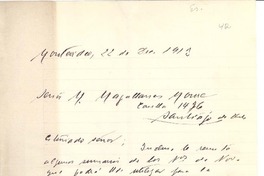 Montevideo, 22 de Dic 1912
Señor M. Magallanes Moure
Casilla 1476
Santiago de Chile
Estimado señor:
algunos sumarios de los Nos de
que podrá Ud. utilizar para la